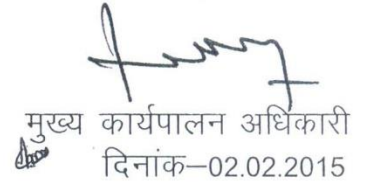 मुख्य कार्यपालन अधिकारी
दिनांक–02.02.2015